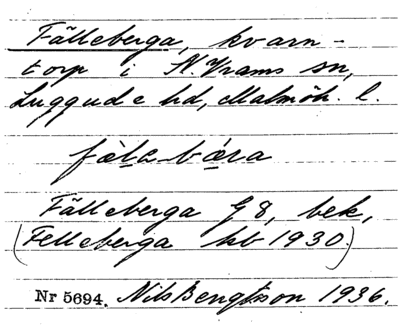 Fälleberga, kvarn-
torp i N. Vrams sn,
Luggude hd, Malmöh. l.
fàlabára
Fälleberga G8, bek,
(Felleberga hb 1930.)
Nr 5694. Nils Bengtsson 1936.